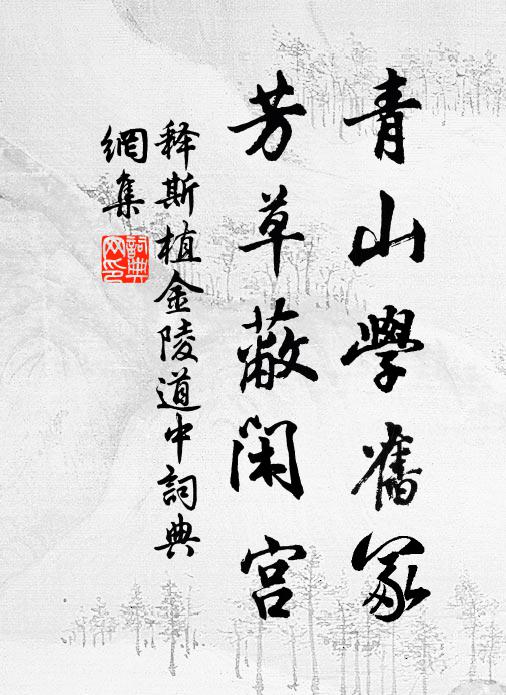 青山學舊冢
芳草蔽闲宫
释斯植金陵道中詞典
網集
詞典
网印